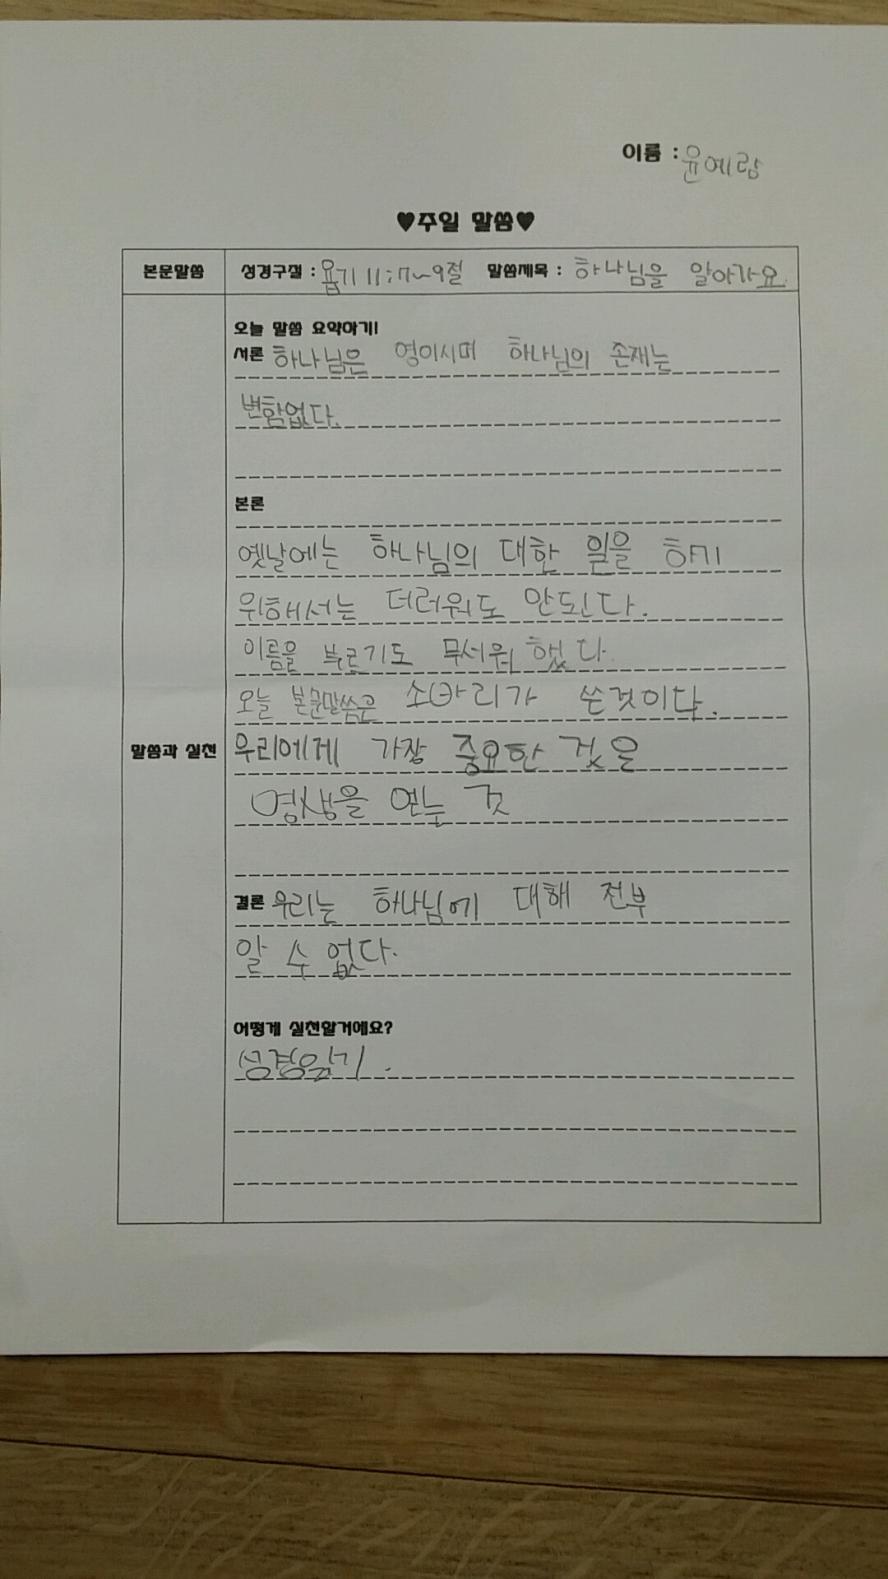 이름 : 윤예람
♥주일 말씀♥
본문말씀 성경구절 : 욥기 11:7~9절 말씀제목 : 하나님을 알아가요
오늘 말씀 요약하기!
서론 하나님은 영이시며 하나님의 존재는
변함없다.
본론
옛날에는 하나님의 대한 일을 하기
위해서는 더러워도 안된다.
이름을 부르기도 무서워 했다
오늘 본문말씀은 소바리가 쓴것이다.
말씀과 실천 우리에게 가장 중요한 것을
영생을 얻는 것
결론 우리는 하나님에 대해 전부
알 수 없다.
어떻게 실천할거에요?
성경읽기.